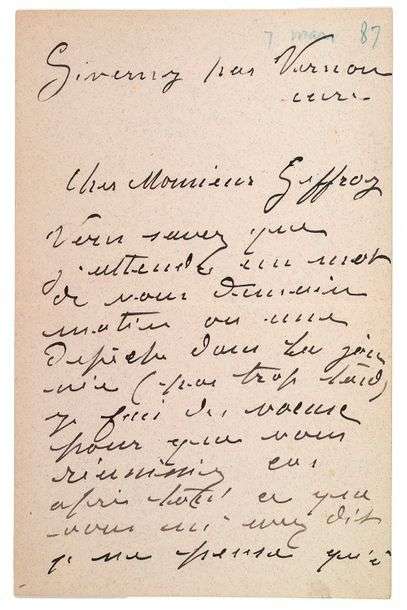 7 mars 87
Giverny par Vernon
Eure
Cher Monsieur Geffroy
Vous savez que
j'attends un mot
de vous demain
matin ou une
depêche dans la jour
née (pas trop tard)
je fais des vœux
pour que vous
réussissiez car
après tout ce que
vous m'avez dit
je ne pense qu'à